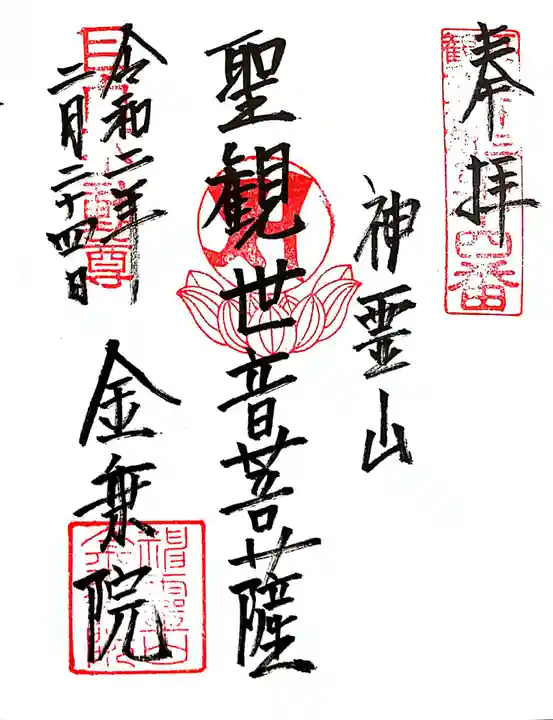 奉拝
神霊山
聖観世音菩薩
令和二年
二月二十四日
金乗院